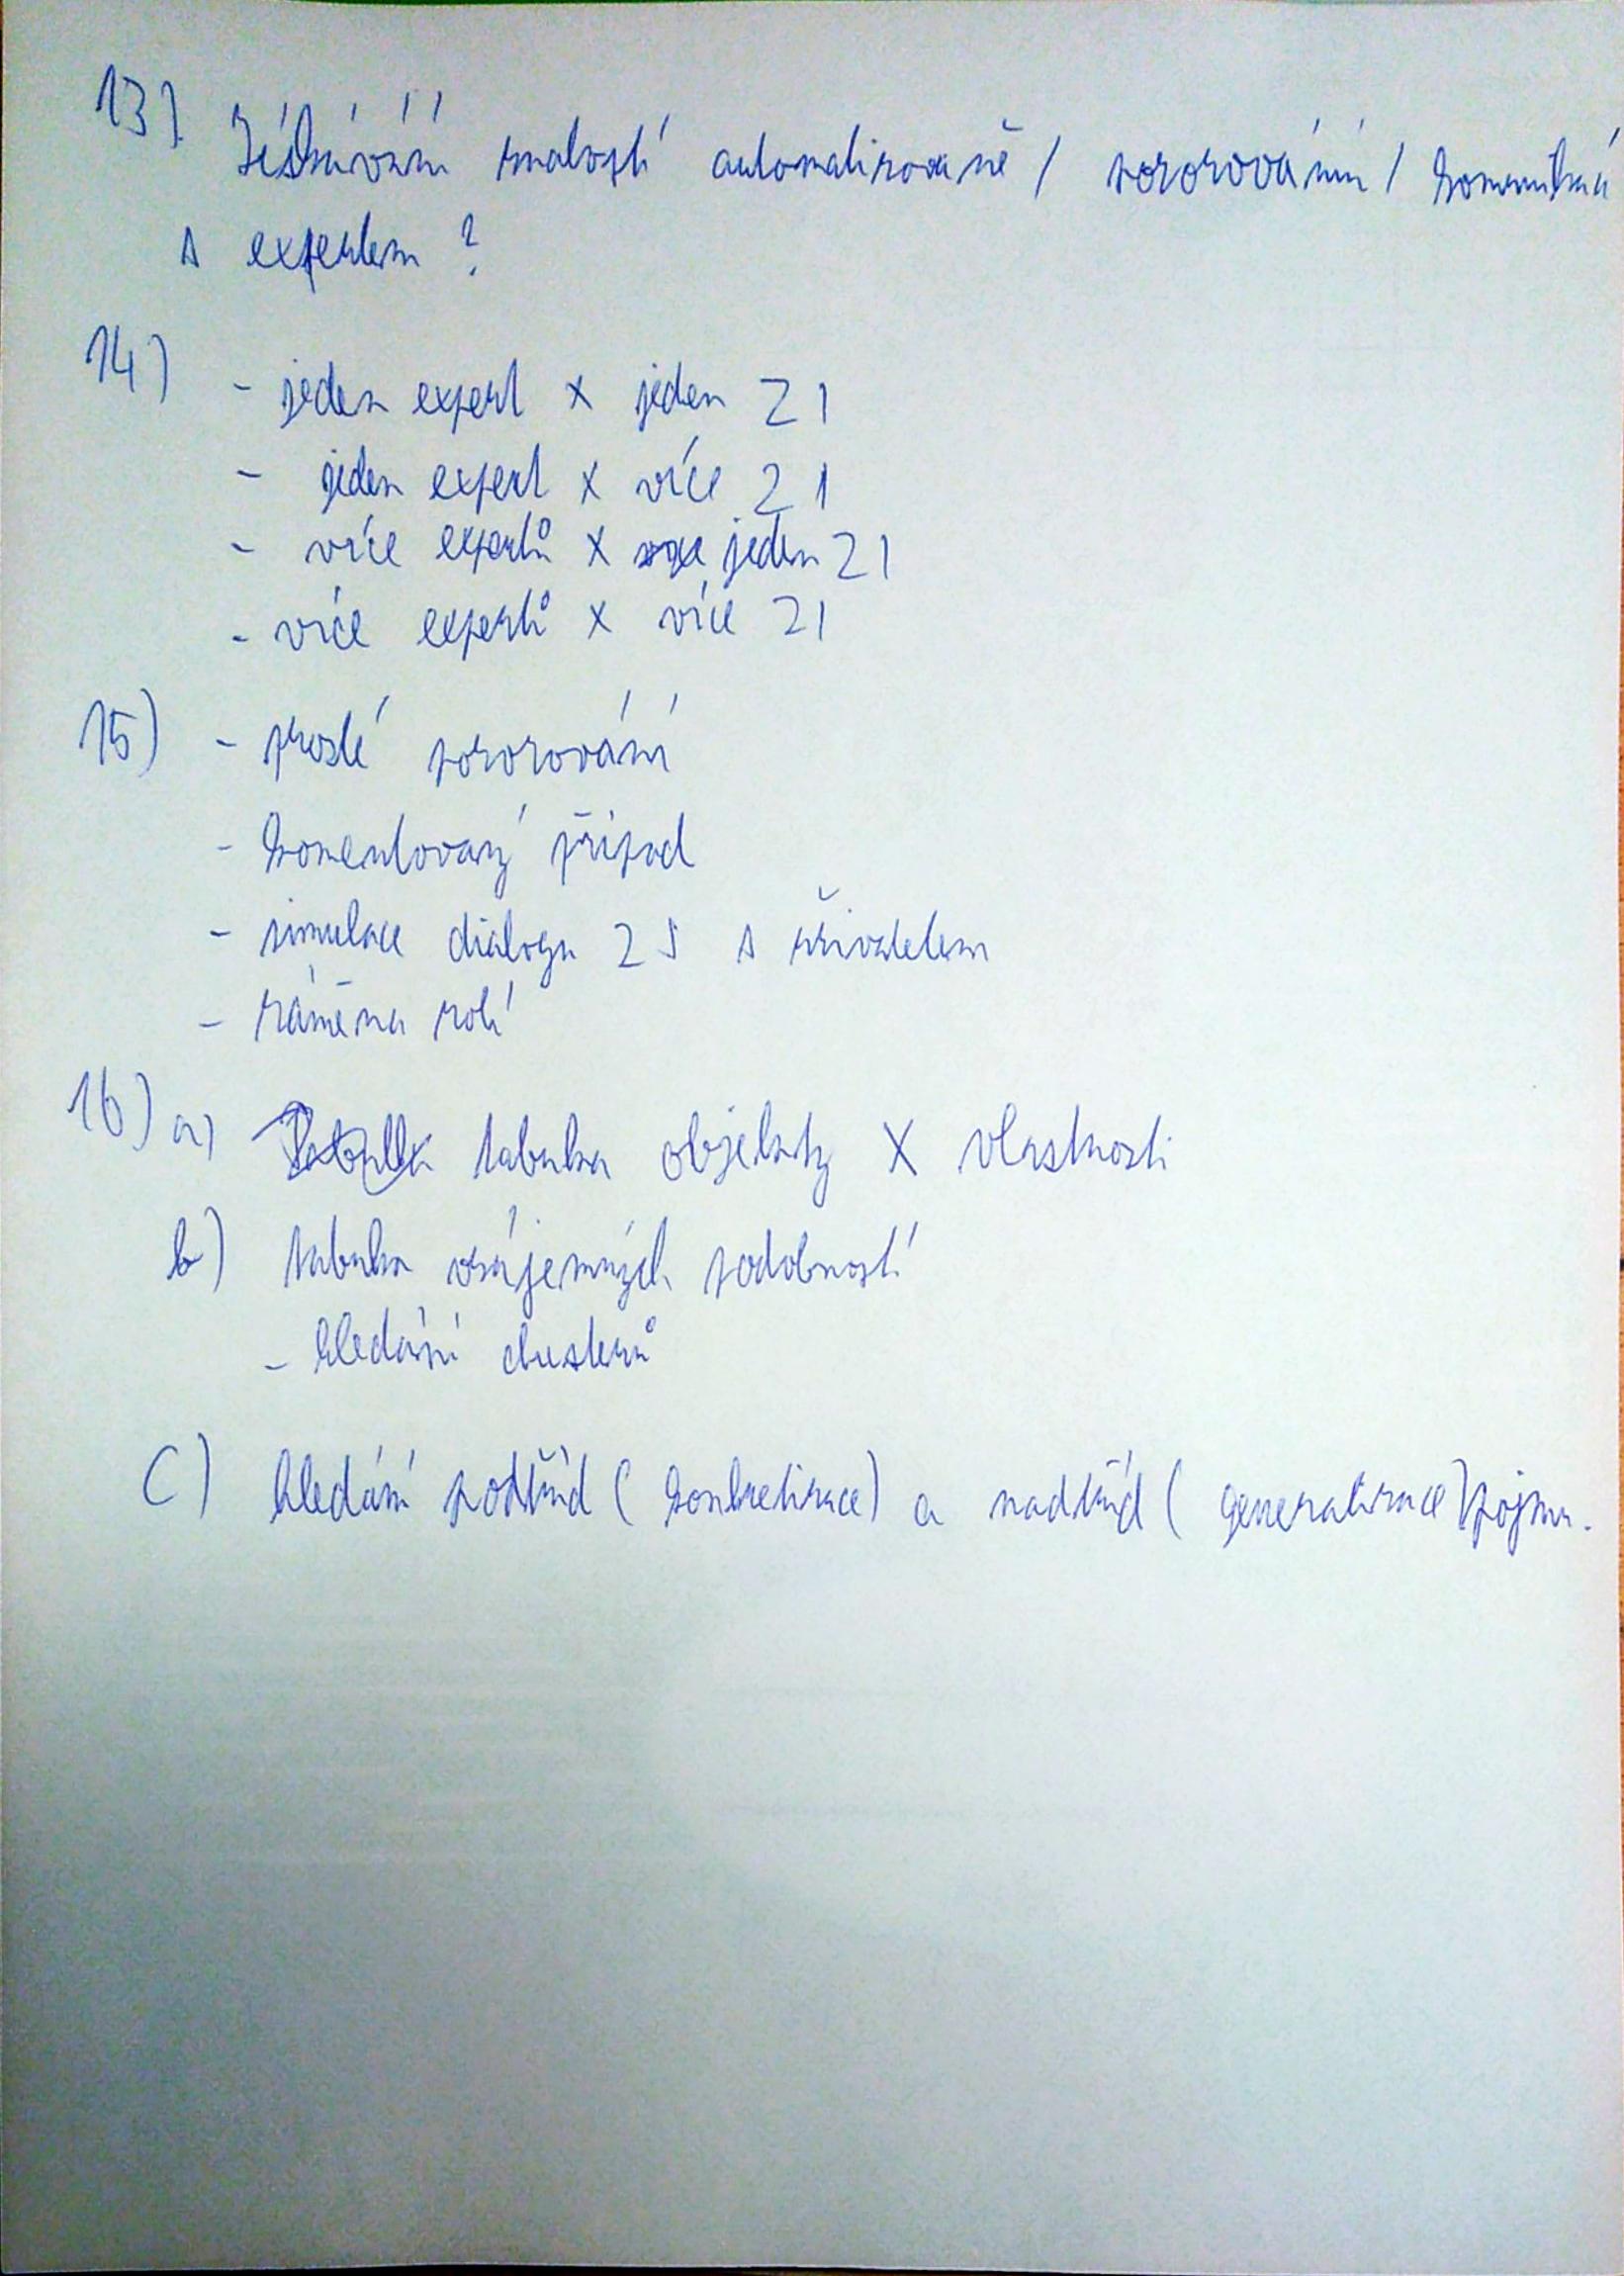 13) Získávání znalostí automatizovaně / pozorováním / komunikací
s expertem ?
14) - jeden expert x jeden ZI
- jeden expert x více ZI
- více expertů x jeden ZI
- více expertů x více ZI
15) - prosté pozorování
- komentovaný případ
- simulace dialogu ZS s uživatelem
- záměna rolí
16) a) tabulka objekty X vlastnosti
b) tabulka vzájemných podobností
- hledání clusterů
C) hledání podtříd ( konkretizace) a nadtříd ( generalizace) pojmu.